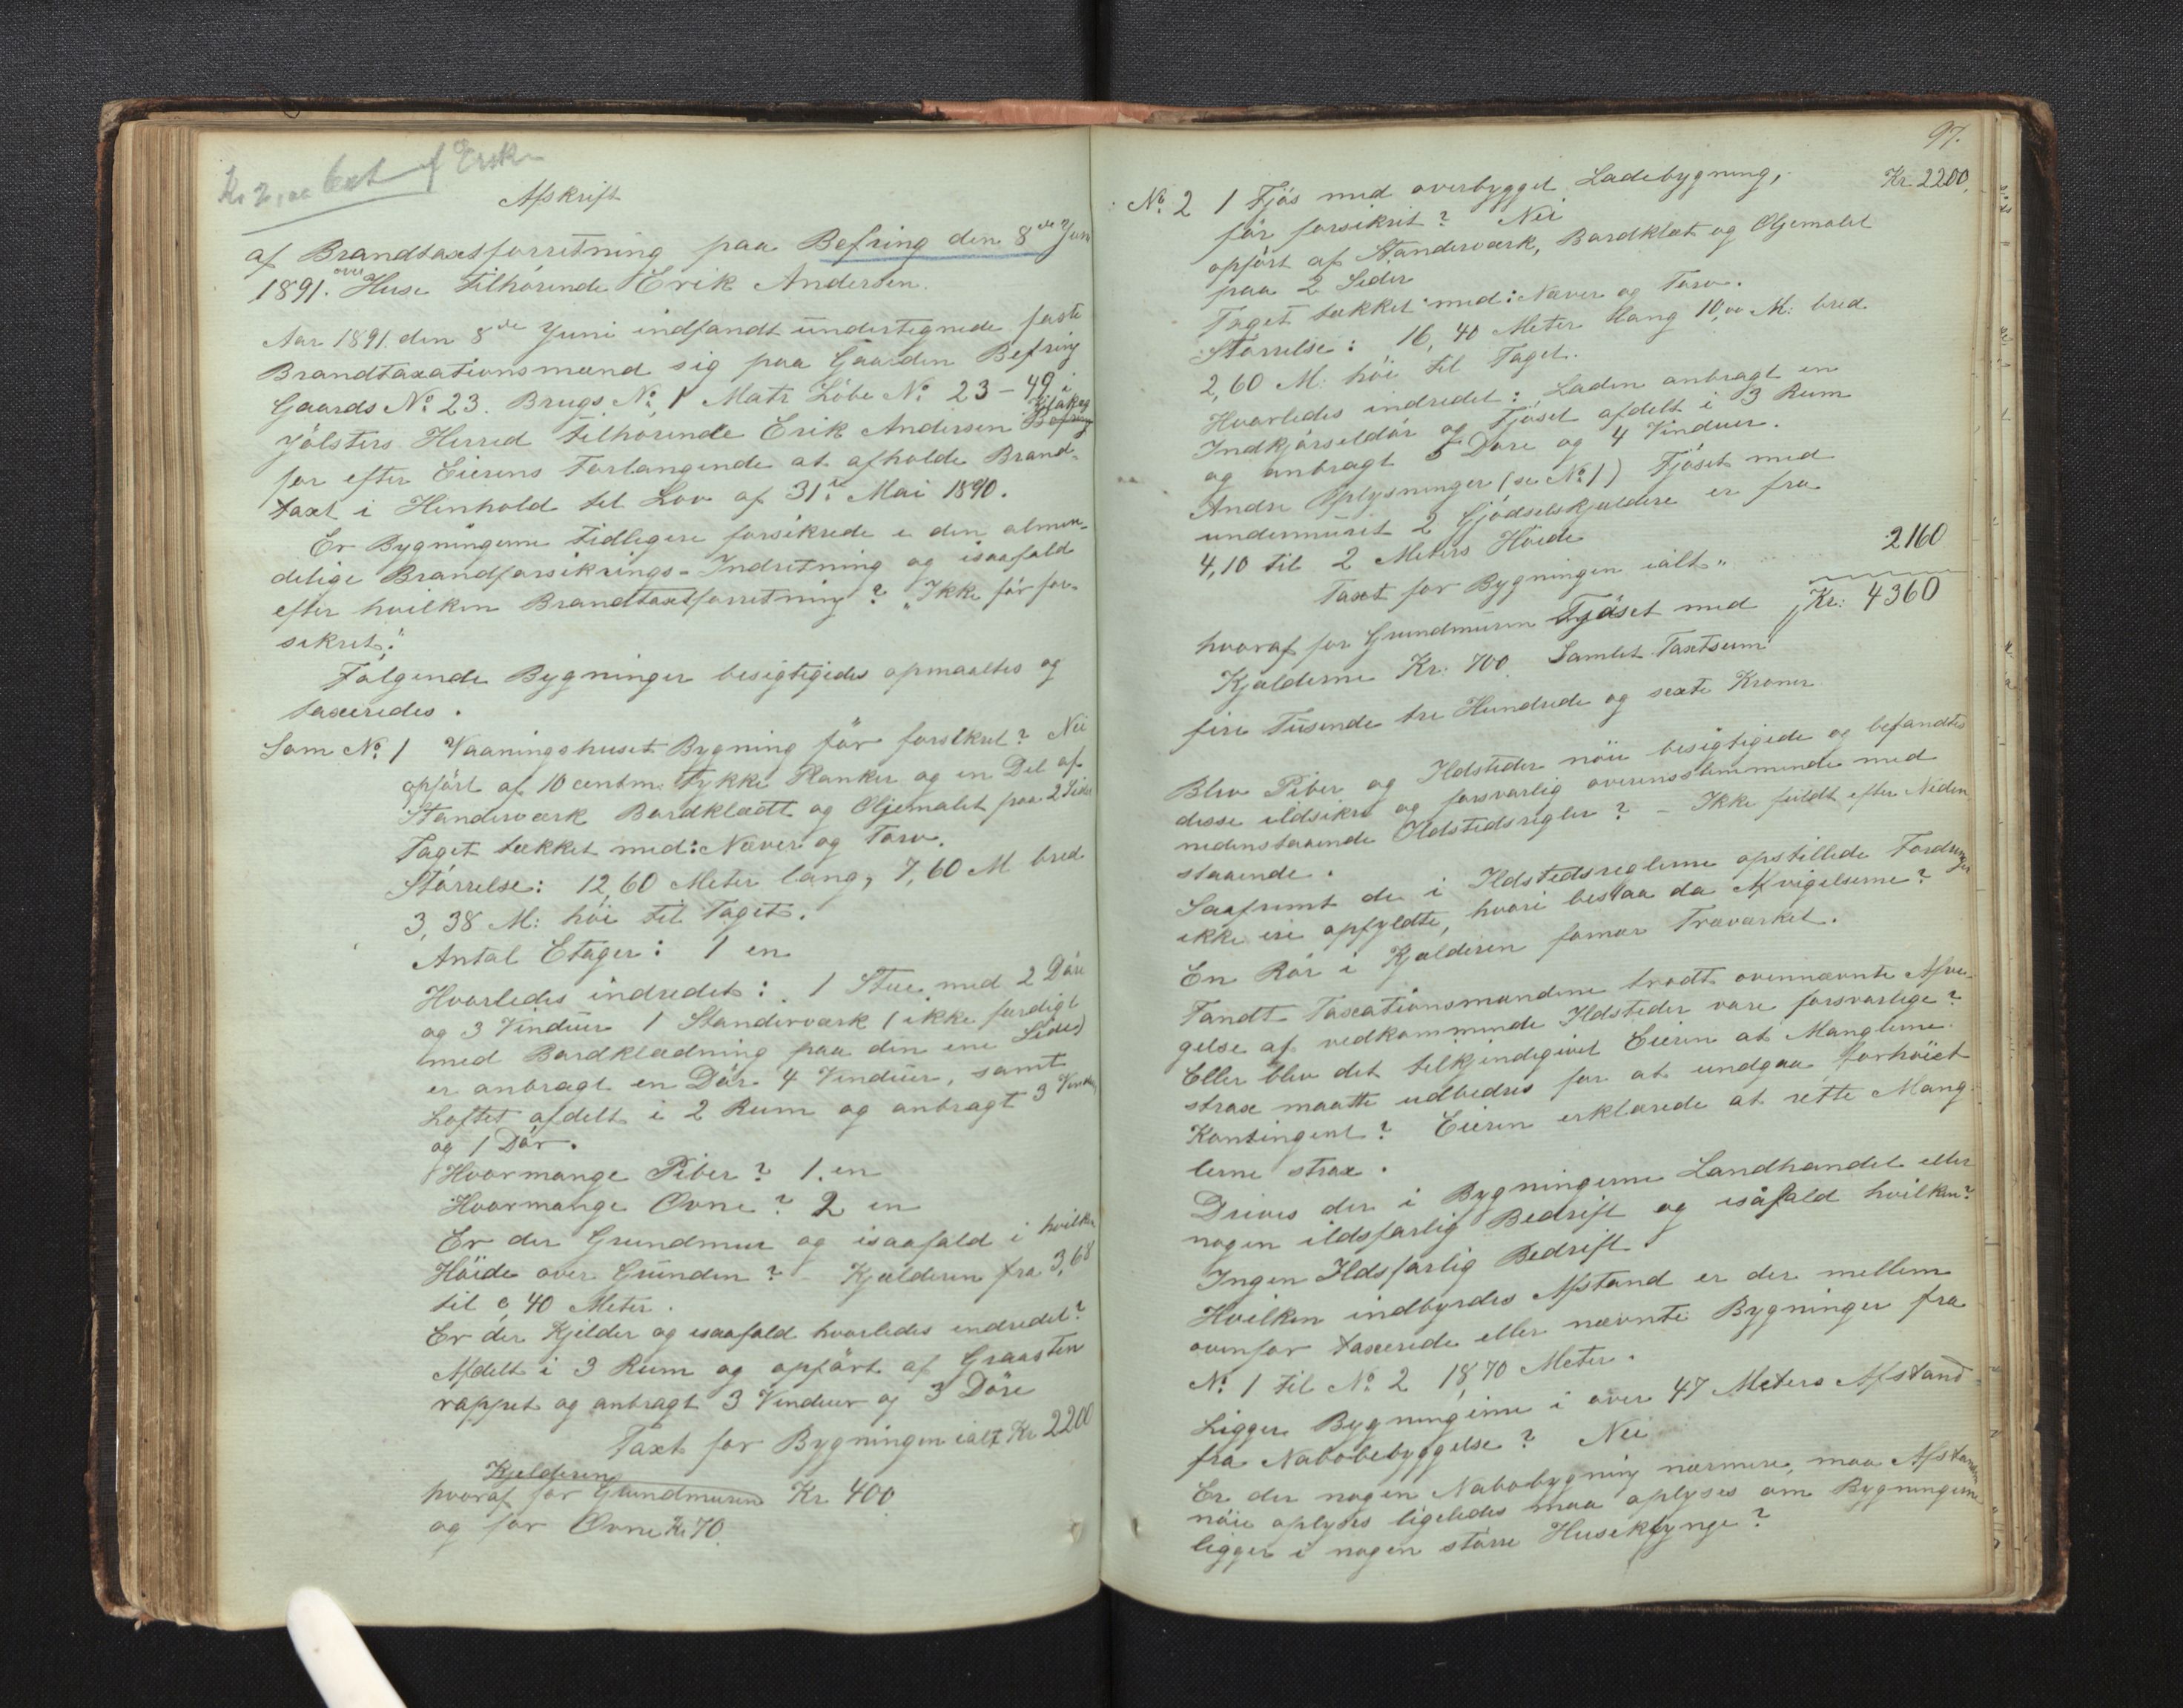 Kr 2,00 bet af Ersk
Afskrift
af Brandtaxtforretning paa Befring den 8de Juni
1891. over Huse tilhørende Erik Andersen.
Aar 1891 den 8de Juni indfandt undertegnede faste
Brandtaxationsmænd sig paa Gaarden Befring
Gaards No 23. Brugs No 1 Matr Løbe No 23-49 i
Jølsters Herred tilhørende Erik Andersen Befring
for efter Eierens Forlangende at afholde Brand-
taxt i Henhold til Lov af 31te Mai 1890.
Er Bygningerne tidligere forsikrede i den almin-
delige Brandforsikrings-Indretning og isaafald
efter hvilken Brandtaxtforretning? "Ikke før for-
sikret."
Følgende Bygninger besigtigedes opmaaltes og
taxeredes.
Som No 1 Vaaningshuset Bygning før forsikret? Nei
opført af 10 centm. tykke Planker og en Del af
Standerværk Bordklædt og Oljemalet paa 2 Sider
Taget tækket med: Næver og Torv.
Størrelse: 12,60 Meter lang, 7,60 M bred
3,38 M: høi til Taget.
Antal Etager: 1 en
Hvorledes indredet: 1 Stue med 2 Døre
og 3 Vinduer 1 Standerværk (ikke færdigt
med Bordklædning paa den ene Side)
er anbragt en Dør 4 Vinduer, samt
Loftet afdelt i 2 Rum og anbragt 3 Vinduer
og 1 Dør.
Hvormange Piber? 1 en
Hvormange Ovne? 2 en
Er der Grundmur og isaafald i hvilken
Høide over Grunden? - Kjælderen fra 3,68
til 0,40 Meter.
Er der Kjelder og isaafald hvorledes indredet?
Afdelt i 3 Rum og opført af Graasten
rappet og anbragt 3 Vinduer og 3 Døre
Taxt for Bygningen ialt Kr 2200
Kjelderen
hvoraf for Grundmuren Kr 400
og for Ovne Kr 70.
97.
No 2 1 Fjøs med overbygget Ladebygning, Kr 2200,
før forsikret? Nei
opført af Standerværk, Bordklæt og Oljemalet
paa 2 Sider
Taget tækket med: Næver og Torv.
Størrelse: 16,40 Meter lang 10,00 M: bred
2,60 M: høi til Taget.
Hvorledes indredet: Laden anbragt en
Indkjørseldør og Fjøset afdelt i 3 Rum
og anbragt 5 Døre og 4 Vinduer.
Andre Oplysninger (se No 1) Fjøset med
undermuret 2 Gjødselskjældere er fra
4,10 til 2 Meters Høide
Taxt for Bygningen ialt " 2160
hvoraf for Grundmuren Fjøset med Kr: 4360
Kjælderne Kr. 700. Samlet Taxtsum
fire Tusende tre Hundrede og sexti Kroner
Blev Piber og Ildsteder nøie besigtigede og befandtes
disse ildsikre og forsvarlig overensstemmende med
nedenstaaende Ildstedsregler? - Ikke fuldt efter Neden
staaende.
Saafremt de i Ildstedsreglerne opstillede Fordringer
ikke ere opfyldte, hvori bestaa da Afvigelserne?
En Rør i Kjælderen fornær Træværket.
Fandt Taxationsmændene trodt ovennævnte Afvi-
gelse af vedkommende Ildsteder vare forsvarlige?
Eller blev det tilkjendegivet Eieren at Manglerne
strax maatte udbedres for at undgaa forhøiet
Kontingent? Eieren erklærede at rette Mang-
lerne strax.
Drives der i Bygningerne Landhandel eller
nogen ildsfarlig Bedrift og isåfald hvilken?
Ingen Ildsfarlig Bedrift.
Hvilken indbyrdes Afstand er der mellem
ovenfor taxerede eller nævnte Bygninger fra
No 1 til No 2 18,70 Meter.
Ligger Bygningerne i over 47 Meters Afstand
fra Nabobebyggelse? Nei
Er der nogen Nabobygning nærmere, maa Afstanden
nøie oplyses ligeledes maa oplyses om Bygningerne
ligger i nogen større Huseklynge?